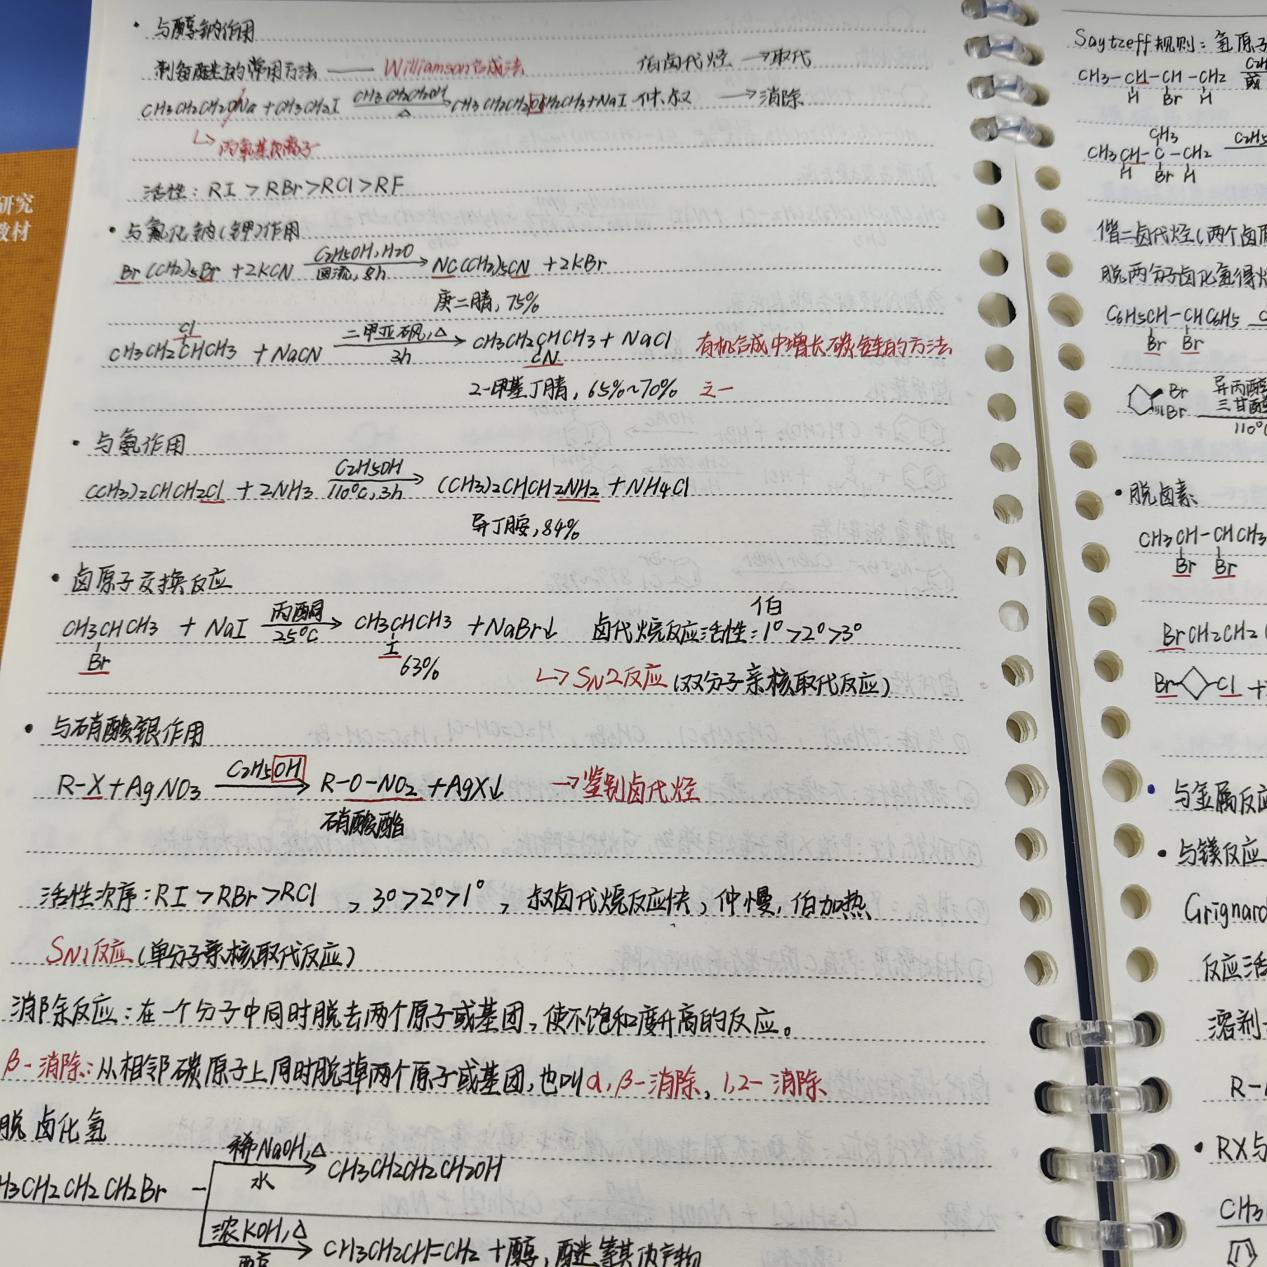 研究
教材
· 与醇钠作用
制备醚的常用方法 —— Williamson合成法 伯卤代烃 → 取代
CH3CH2CH2ONa + CH3CH2I CH3CH2CH2OH △ → CH3CH2CH2OCH2CH3+NaI 仲、叔 → 消除
↳ 丙氧基负离子
活性: RI > RBr > RCl > RF
· 与氰化钠(钾)作用
Br(CH2)5Br + 2KCN C2H5OH, H2O 回流, 8h → NC(CH2)5CN + 2KBr
庚二腈, 75%
Cl
CH3CH2CHCH3 + NaCN 二甲亚砜, △ 3h → CH3CH2CHCH3 + NaCl 有机合成中增长碳链的方法
CN
2-甲基丁腈, 65%~70% 之一
· 与氨作用
(CH3)2CHCH2Cl + 2NH3 C2H5OH 110℃, 3h → (CH3)2CHCH2NH2 + NH4Cl
异丁胺, 84%
· 卤原子交换反应
伯
CH3CHCH3 + NaI 丙酮 25℃ → CH3CHCH3 + NaBr↓ 卤代烷反应活性: 1° > 2° > 3°
Br I 63% ↳ SN2反应 (双分子亲核取代反应)
· 与硝酸银作用
R-X + AgNO3 C2H5OH → R-O-NO2 + AgX↓ → 鉴别卤代烃
硝酸酯
活性次序: RI > RBr > RCl , 3° > 2° > 1° , 叔卤代烷反应快, 仲慢, 伯加热
SN1反应 (单分子亲核取代反应)
消除反应: 在一个分子中同时脱去两个原子或基团, 使不饱和度升高的反应。
β-消除: 从相邻碳原子上同时脱掉两个原子或基团, 也叫α,β-消除, 1,2-消除
脱卤化氢
稀NaOH, △
H3CH2CH2CH2Br 水 → CH3CH2CH2CH2OH
浓KOH, △
醇 → CH3CH2CH=CH2 + 醇, 醚等其他产物
Saytzeff规则: 氢原子
CH3-CH-CH-CH2
H Br H
CH3
CH3CH-C-CH2 C2H5
H Br H
偕二卤代烃(两个卤
脱两分子卤化氢得
C6H5CH-CHC6H5
Br Br
Br 异丙醇
Br 三甘醇
110℃
· 脱卤素
CH3CH-CHCH3
Br Br
BrCH2CH2
Br Cl +
· 与金属反应
· 与镁反应
Grignard
反应活
溶剂
R-
· RX与
CH3